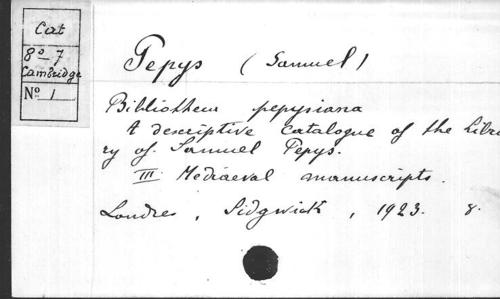 Cat
8º 7
Cambridge
Nº 1
Pepys (Samuel)
Bibliotheca pepysiana
A descriptive catalogue of the Libra
ry of Samuel Pepys.
III. Mediaeval manuscripts.
Londres, Sidgwick, 1923. 8.